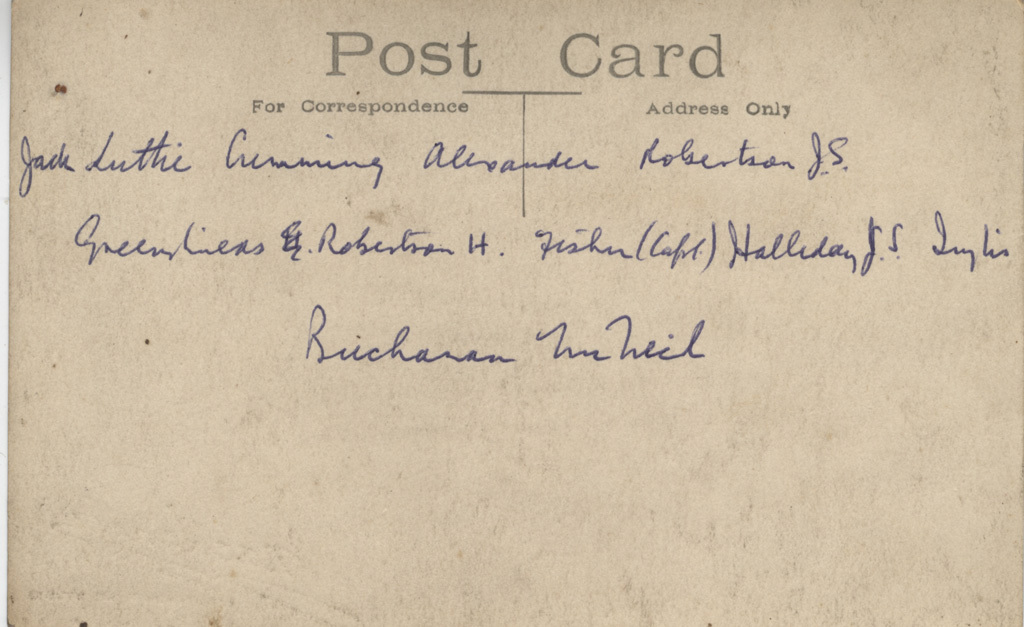 Post Card
For Correspondence Address Only
Jack Luttie Cumming Alexander Robertson J.S.
Greenshields G. Robertson H. Fisher (Capt.) Halliday J.S. Inglis
Buchanan McNeil